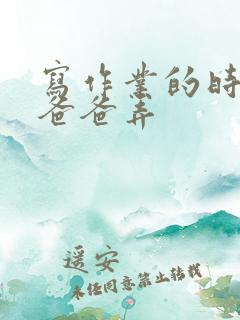 寫作業的時
爸爸弄
遥安
未任同意禁止转载